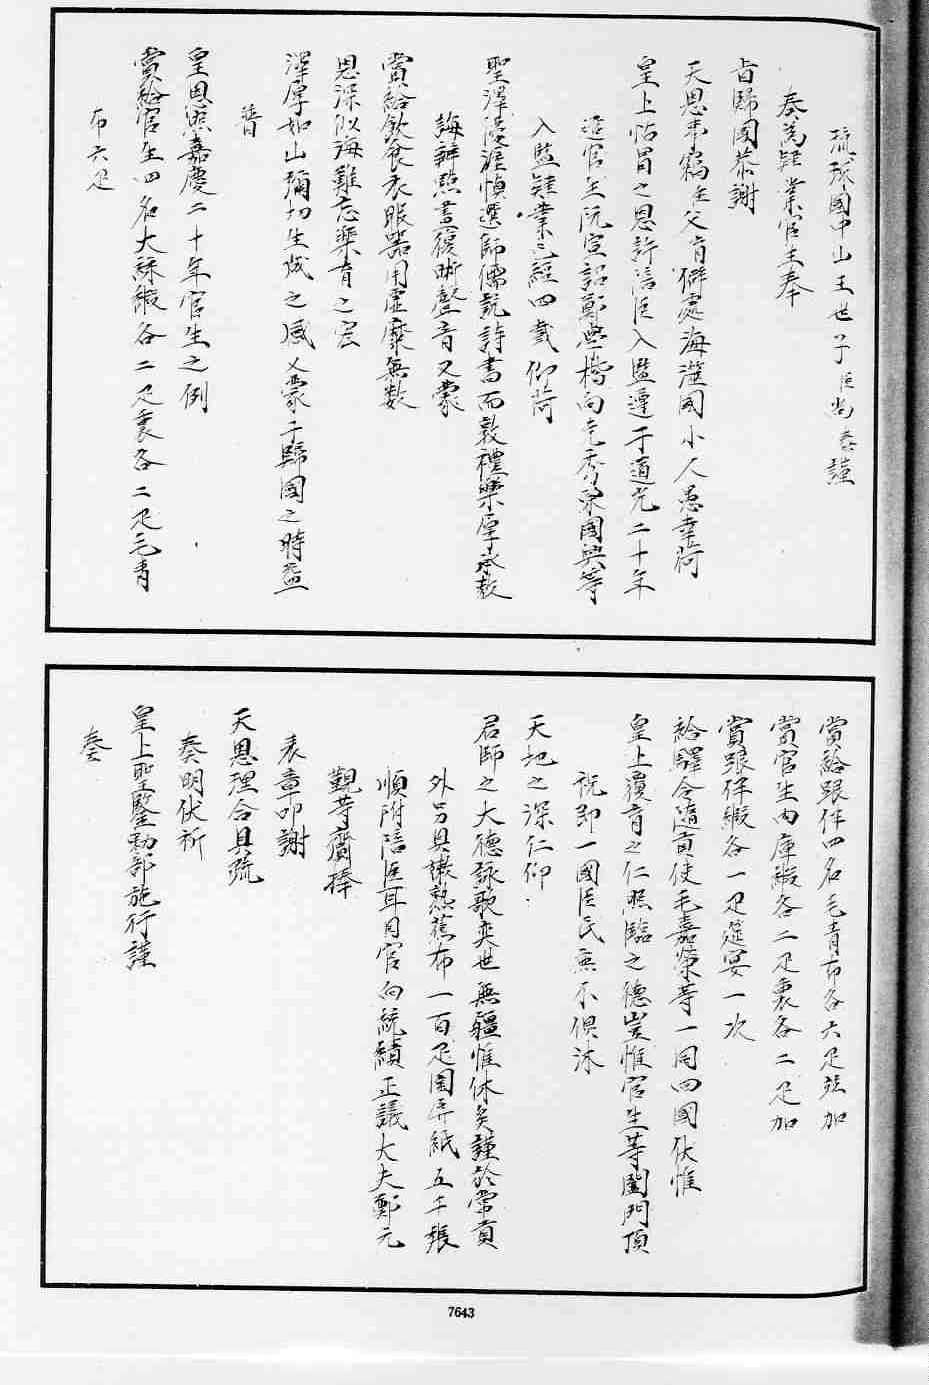 琉球國中山王世子臣尚泰謹
奏為肄業官生奉
旨歸國恭謝
天恩事竊臣父育僻處海澨國小人愚幸荷
皇上怙冒之恩許陪臣入監遵于道光二十年
遣官生阮宣詔鄭學楷向克秀東國興等
入監肄業三經四載仰荷
聖澤優渥慎選師儒說詩書而敦禮樂厚承教
誨辨點畫復晰聲音又蒙
賞給飲食衣服器用虛糜無數
恩深似海難忘樂育之宏
澤厚如山彌切生成之感又蒙于歸國之時益
普
皇恩照嘉慶二十年官生之例
賞給官生四名大綵緞各二疋裏各二疋毛青
布六疋
賞給跟伴四名毛青布各六疋玆加
賞官生內庫緞各二疋裏各二疋加
賞跟伴緞各一疋筵宴一次
給驛令隨貢使毛嘉榮等一同回國伏惟
皇上覆育之仁照臨之德豈惟官生等闔門頂
祝即一國臣民無不俱沐
天地之深仁仰
君師之大德詠歌奕世無疆惟休矣謹於常貢
外另具嫩熟蕉布一百疋圍屏紙五千張
順附陪臣耳目官向統績正議大夫鄭元
覲等齎捧
表章叩謝
天恩理合具疏
奏明伏祈
皇上聖鑒勅部施行謹
奏
7643